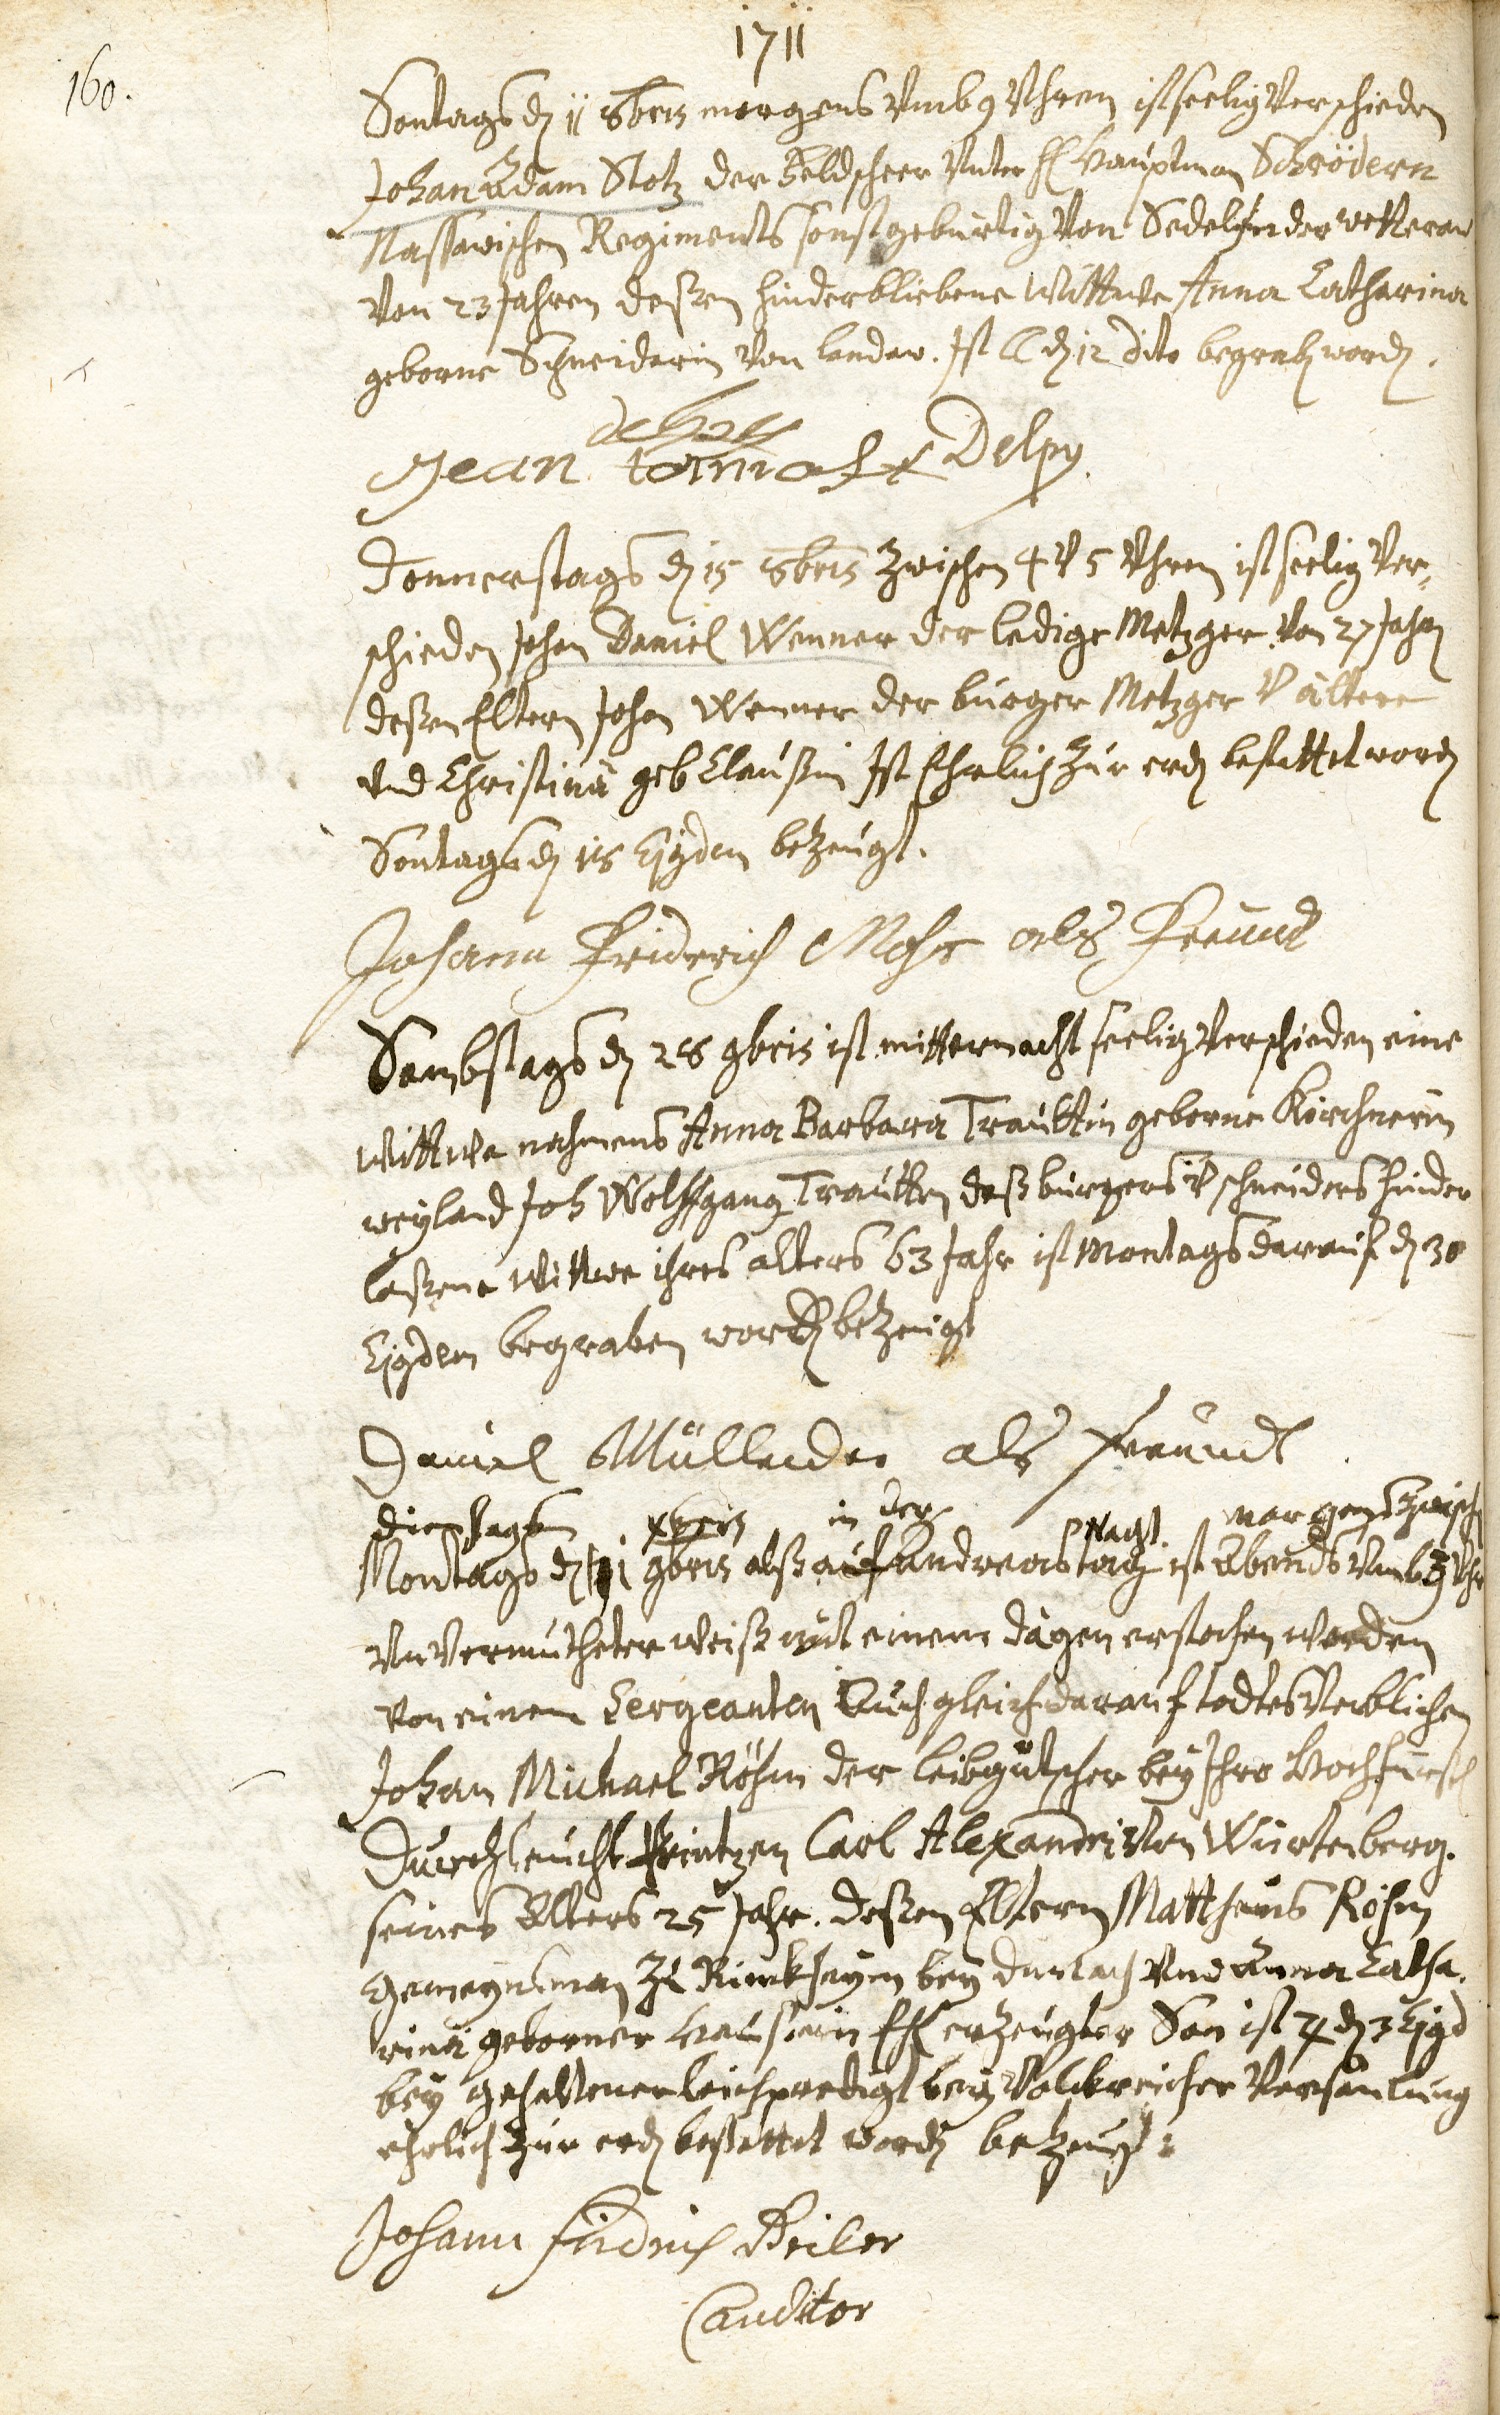 1711
160.
Sontags dȝ 11 8bris morgens Vmb 9 Vhren ist seelig Verschieden
Johan Adam Stotz der Feldscheer Vnter H Hauptman Schrödern
Nassawischen Regiments sonst gebürtig Von Sedel in der wetteraw
Von 23 Jahren deßen hinderbliebene Wittwe Anna Catharina
geborne Schneiderin Von landaw. Ist dȝ 12 dito begrabȝ wordȝ.
Jean Delpy
Donnerstags dȝ 15 8bris zwischen 4 V 5 Vhren ist seelig Ver-
schieden Johan Daniel Wenner der ledige Metzger Von 27 Jahrȝ
deßen Eltern Johan Wenner der burger Metzger V ältere
Vnd Christina geb Claußin Ist Ehrlich zur erdȝ bestattet wordȝ
Sontags dȝ 18 Ejusdem bezeugt.
Johann Friderich Mohr als Freund
Sambstags dȝ 28 9bris ist mitternacht seelig Verschieden eine
Wittwe nahmens Anna Barbara Trauttin geborne Kirchnerin
weyland Joh Wolffgang Trautten deß burgers V schneiders hinder
laßene Wittwe ihres alters 63 Jahr ist Montags darauf dȝ 30
Ejusdem begraben wordȝ bezeugt
Daniel Müllender als freundt
dienstags xbris in der Nacht morgens zwischȝ
Montags dȝ 1 9bris alß auf Andreas tag ist Abends Vmb Vhr
VnVermutheter weiß mit einem dägen erstochen worden
Von einem Sergeanten Auch gleich darauf todtes Verblichen
Johan Michael Röhm der leibgutscher bey Ihro Hochfürstl
Durchleucht Printzen Carl Alexandri Von Würtenberg.
seines Alters 25 Jahr. deßen Eltern Mattheus Röhm
Gemeynsman zu Rinckheym bey durlach Vnd Anna Catha.
rina geborner Hausterin Ehl erzeugter Son ist dȝ 3 Ejusd
bey gehaltener leichpredigt bey Volckreicher Versamlung
ehrlich zur erdȝ bestattet wordȝ bezeugt:
Johann fridrich Beiler
auditor